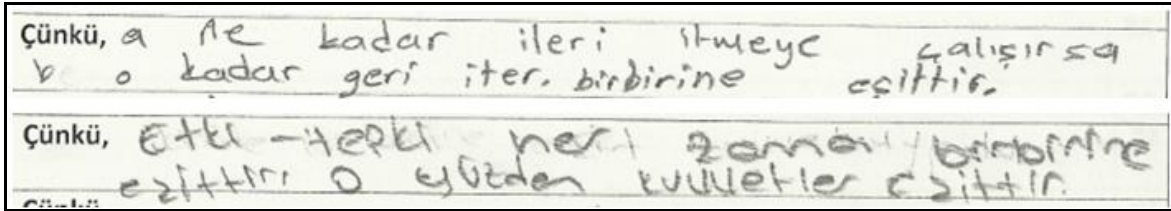 Çünkü, a ne kadar ileri itmeye çalışırsa
b o kadar geri iter. birbirine eşittir.
Çünkü, Etki-tepki her zaman birbirine
eşittir. O yüzden kuvvetler eşittir.
Çünkü